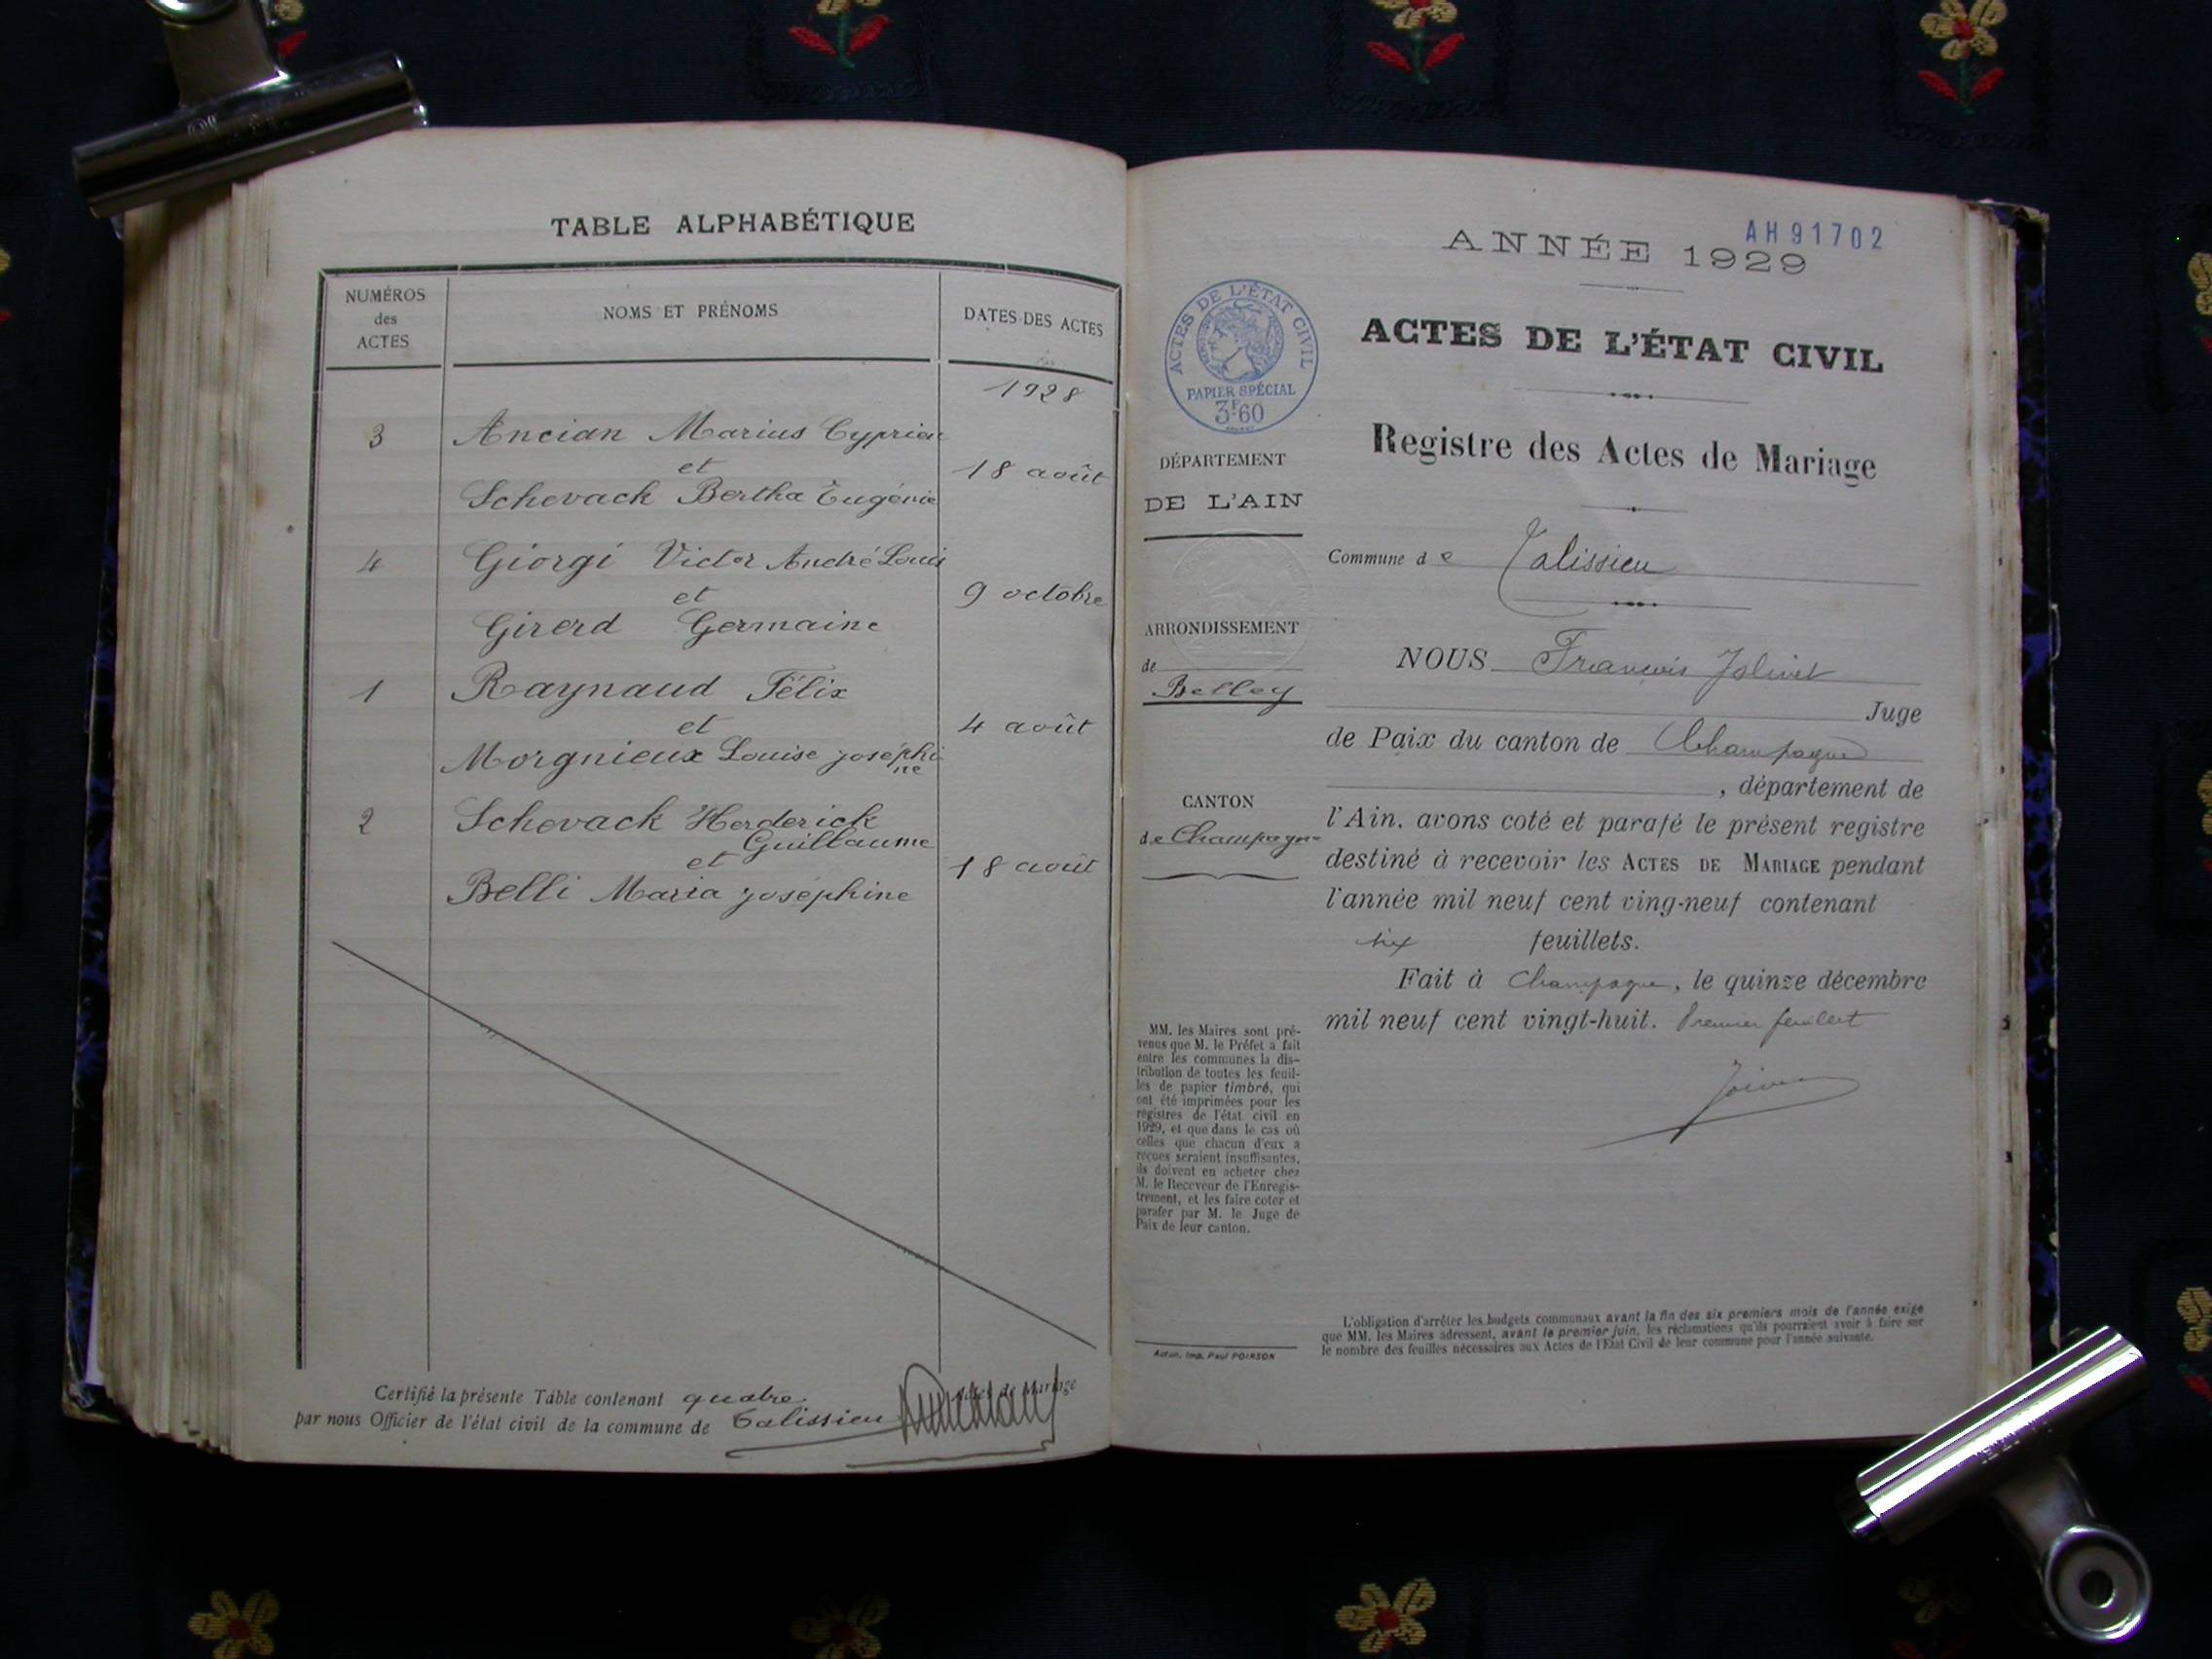 TABLE ALPHABÉTIQUE
NUMÉROS
des
ACTES
NOMS ET PRÉNOMS
DATES DES ACTES
1928
3
Ancian Marius Cyprien
et
18 août
Schevack Bertha Eugénie
4
Giorgi Victor André Louis
et
9 octobre
Girerd Germaine
1
Raynaud Félix
et
4 août
Morgnieux Louise joséphi
ne
2
Schevack Herderick
Guillaume
et
18 août
Belli Maria joséphine
Certifié la présente Table contenant quatre Actes de Mariage
par nous Officier de l'état civil de la commune de Talissieu
AH91702
ANNÉE 1929
ACTES DE L'ÉTAT CIVIL
PAPIER SPÉCIAL
3F60
ACTES DE L'ÉTAT CIVIL
Registre des Actes de Mariage
DÉPARTEMENT
DE L'AIN
Commune de Talissieu
ARRONDISSEMENT
de
Belley
CANTON
de Champagne
NOUS François Jolivet
Juge
de Paix du canton de Champagne
, département de
l'Ain, avons coté et parafé le présent registre
destiné à recevoir les ACTES DE MARIAGE pendant
l'année mil neuf cent ving-neuf contenant
six feuillets.
Fait à Champagne, le quinze décembre
mil neuf cent vingt-huit. Premier feuillet
MM. les Maires sont pré-
venus que M. le Préfet a fait
entre les communes la dis-
tribution de toutes les feuil-
les de papier timbré, qui
ont été imprimées pour les
registres de l'état civil en
1929, et que dans le cas où
celles que chacun d'eux a
reçues seraient insuffisantes,
ils doivent en acheter chez
M. le Receveur de l'Enregis-
trement, et les faire coter et
parafer par M. le Juge de
Paix de leur canton.
Autun, Imp. Paul POIRSON
L'obligation d'arrêter les budgets communaux avant la fin des six premiers mois de l'année exige
que MM. les Maires adressent, avant le premier juin, les réclamations qu'ils pourraient avoir à faire sur
le nombre des feuilles nécessaires aux Actes de l'Etat Civil de leur commune pour l'année suivante.